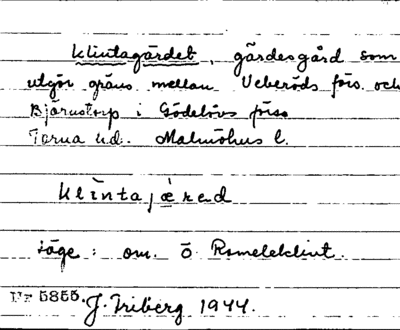 Klintagärdet, gärdesgård som
utgör gräns mellan Veberöds förs. och
Bjärnstorp i Gödelövs förs.
Torna hd. Malmöhus l.
klintajæred
Läge: om. Ö Romeleklint.
Nr 5855. J. Friberg 1944.